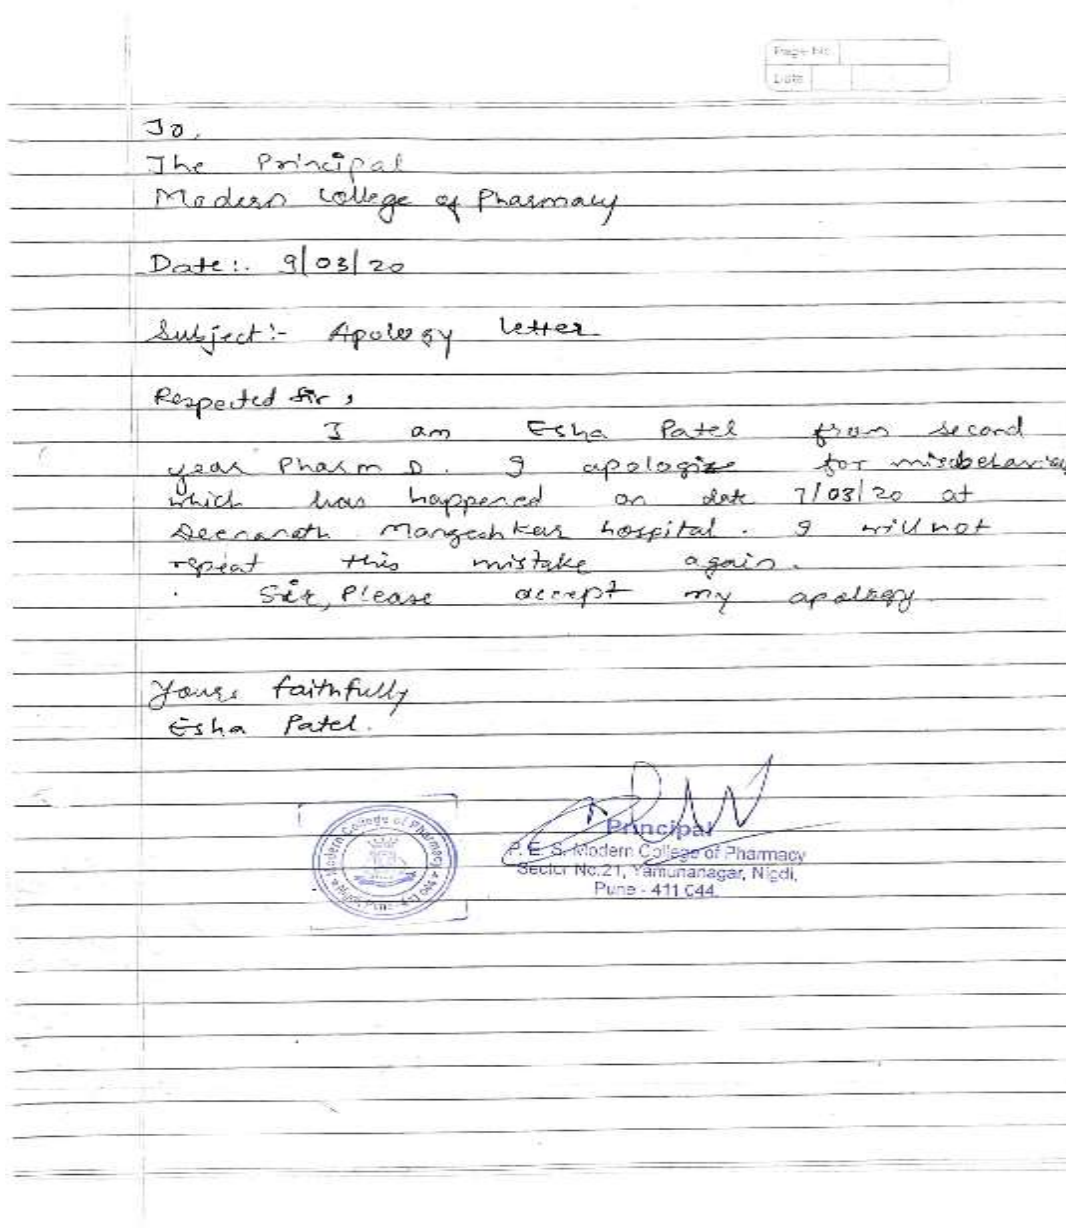 Page No.
Date
To,
The Principal
Modern College of Pharmacy
Date:. 9/03/20
Subject:- Apology letter
Respected Sir,
I am Esha Patel from second
year Pharm D. I apologize for misbehaving
which has happened on date 7/03/20 at
Deenanath Mangeshkar hospital. I will not
repeat this mistake again.
Sir, Please accept my apology
Yours faithfully
Esha Patel.
Modern College of Pharmacy
Principal
P. E. S. Modern College of Pharmacy
Sector No.21, Yamunanagar, Nigdi,
Pune - 411 044.